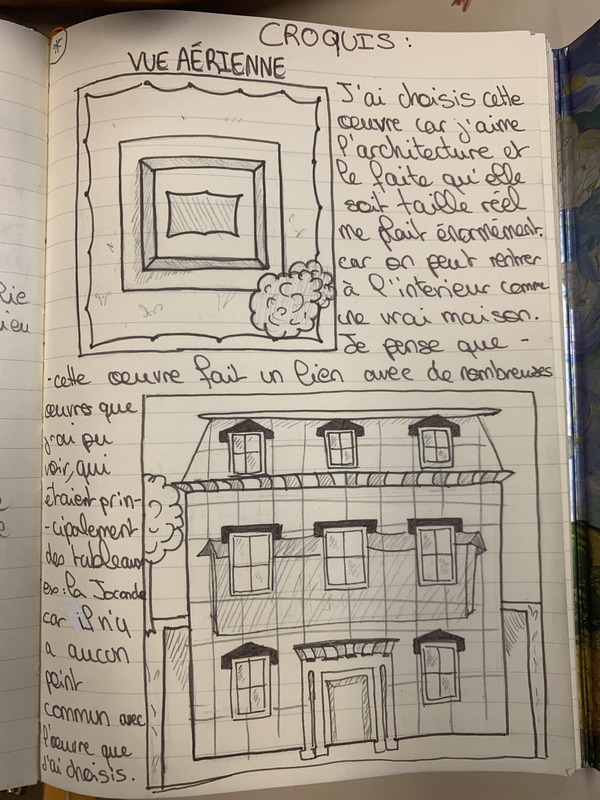 CROQUIS :
VUE AÉRIENNE
J'ai choisis cette
œuvre car j'aime
l'architecture et
le faite qu'elle
soit taille réel
me plait énormément.
car on peut rentrer
à l'interieur comme
une vrai maison.
Je pense que -
-cette œuvre fait un lien avec de nombreuses
œuvres que
j'ai pu
voir, qui
étaient prin-
-cipalement
des tableaux
ex: la Joconde
car il n'y
a aucun
point
commun avec
l'œuvre que
j'ai choisis.